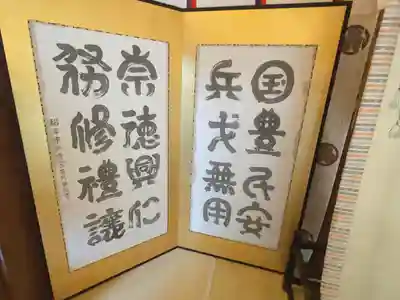 国豊民安
兵戈無用
崇徳興仁
務修禮讓